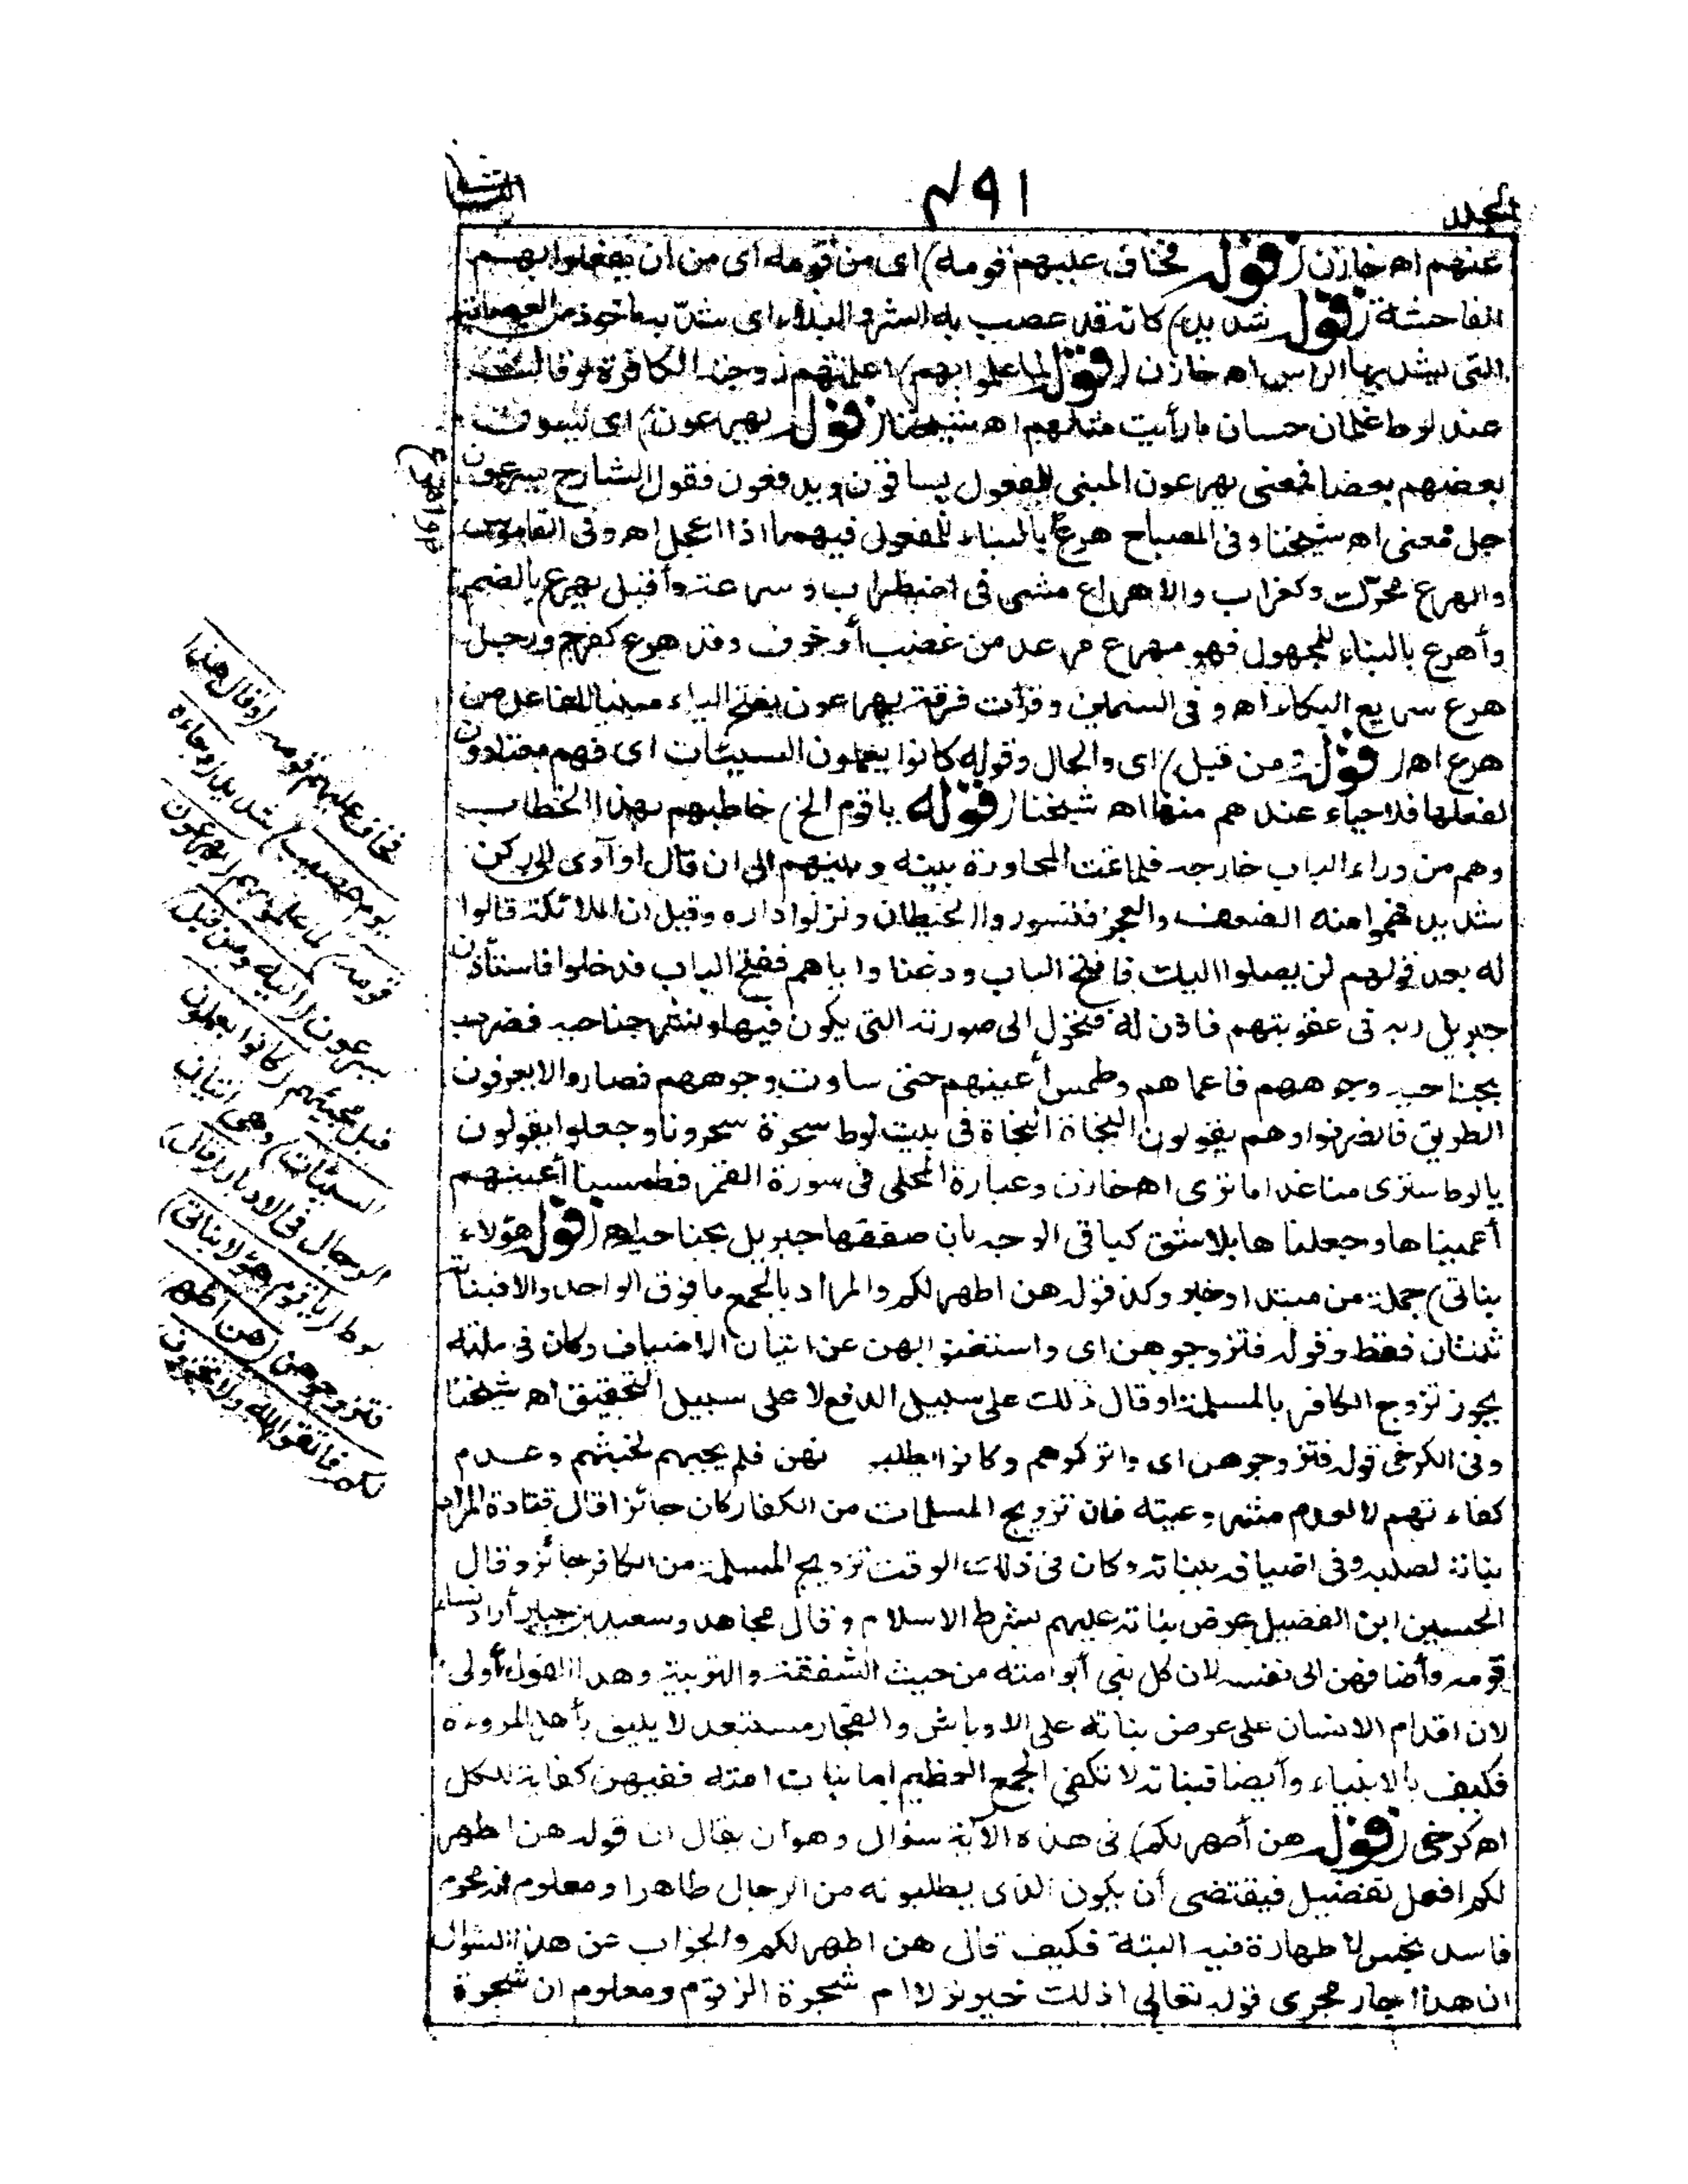 الجلد
٤٩١
الثانى
عنهم اه خازن (قوله فخاف عليهم قومه) اى من قومه اى من أن يفعلوا بهم
الفاحشة (قوله شديد) كانه قد عصب به الشر والبلاء اى شدّ به مأخوذ من العصابة
التى يشد بها الراس اه خازن (قوله لما علموا بهم) اعلمتهم زوجته الكافرة
عند لوط غلمان حسان ما رأيت مثلهم اه شيخنا (قوله يهرعون) اى يسوق
بعضهم بعضا فمعنى يهرعون المبنى للمفعول يساقون ويدفعون فقول الشارح يسرعون
حل معنى اه شيخنا وفى المصباح هرع بالبناء للمفعول فيهما اذا اعجل اه وفى القاموس
والهرع محرّك وكغراب والاهراع مشى فى اضطراب وسرعة وأقبل يهرع بالضم
وأهرع بالبناء للمجهول فهو مهرع مرعد من غضب أو خوف وقد هرع كفرح ورجل
هرع سريع البكاء اه وفى السمين وقرأت فرقة يهرعون بفتح الياء مبنيا للفاعل من
هرع اه (قوله ومن قبل) اى والحال وقوله كانوا يعملون السيئات اى فهم معتادون
لفعلها فلا حياء عندهم منها اه شيخنا (قوله ياقوم الخ) خاطبهم بهذا الخطاب
وهم من وراء الباب خارجه فلما تمت المحاورة بينه وبينهم الى ان قال او آوى الى ركن
شديد فهموا منه الضعف والعجز فتسوروا الحيطان ونزلوا داره وقيل ان الملائكة قالوا
له بعد قولهم لن يصلوا اليك فافتح الباب ودعنا واياهم ففتح الباب فدخلوا فاستأذن
جبريل ربه فى عقوبتهم فاذن له فتحول الى صورته التى يكون فيها ونشر جناحيه فضرب
بجناحيه وجوههم فاعماهم وطمس أعينهم حتى ساوت وجوههم فصاروا لا يعرفون
الطريق فانصرفوا وهم يقولون النجاة النجاة فى بيت لوط سحرة سحرونا وجعلوا يقولون
يا لوط سترى منا غدا ما ترى اه خازن وعبارة المحلى فى سورة القمر فطمسنا أعينهم
أعميناها وجعلناها بلا شق كباقى الوجه بان صفقها جبريل بجناحه اه (قوله هؤلاء
بناتى) جملة من مبتدا وخبر وكذا قوله هن اطهر لكم والمراد بالجمع ما فوق الواحد والا فبناته
ثنتان فقط وقوله فتزوجوهن اى واستغنوا بهن عن اتيان الاضياف وكان فى ملته
يجوز تزوج الكافر بالمسلمة او قال ذلك على سبيل الدفع لا على سبيل التحقيق اه شيخنا
وفى الكرخى قوله فتزوجوهن اى واتركوهم وكانوا يطلبونهن فلم يجبهم لخبثهم وعدم
كفاءتهم لا لعدم مشروعيته فان تزويج المسلمات من الكفار كان جائزا قال قتادة المراد
بناته لصلبه وفى اضيافه ببناته وكان فى ذلك الوقت تزويج المسلمة من الكافر جائز وقال
الحسين ابن الفضيل عرض بناته عليهم بشرط الاسلام وقال مجاهد وسعيد بن جبير أراد نساء
قومه وأضافهن الى نفسه لان كل نبى أبو امته من حيث الشفقة والتربية وهذا القول أولى
لان اقدام الانسان على عرض بناته على الاوباش والفجار مستبعد لا يليق بأهل المروءة
فكيف بالانبياء وأيضا فبناته لا تكفى الجمع العظيم اما بنات امته ففيهن كفاية للكل
اه كرخى (قوله هن أطهر لكم) فى هذه الآية سؤال وهو ان يقال ان قوله هن اطهر
لكم افعل تفضيل فيقتضى أن يكون الذى يطلبونه من الرجال طاهرا ومعلوم انه محرم
فاسد نجس لا طهارة فيه البتة فكيف قال هن اطهر لكم والجواب عن هذا السؤال
ان هذا جار مجرى قوله تعالى اذلك خير نزلا ام شجرة الزقوم ومعلوم ان شجرة
فخاف عليهم قومه (وقال هذا
يوم عصيب) شديد (وجاءه
قومه) لما علموا بهم (يهرعون)
يسرعون (اليه ومن قبل)
قبل مجيئهم (كانوا يعملون
السيئات) وهى اتيان
الرجال فى الادبار (قال)
لوط (ياقوم هؤلاء بناتى)
فتزوجوهن (هن اطهر
لكم فاتقوا الله ولا تخزون